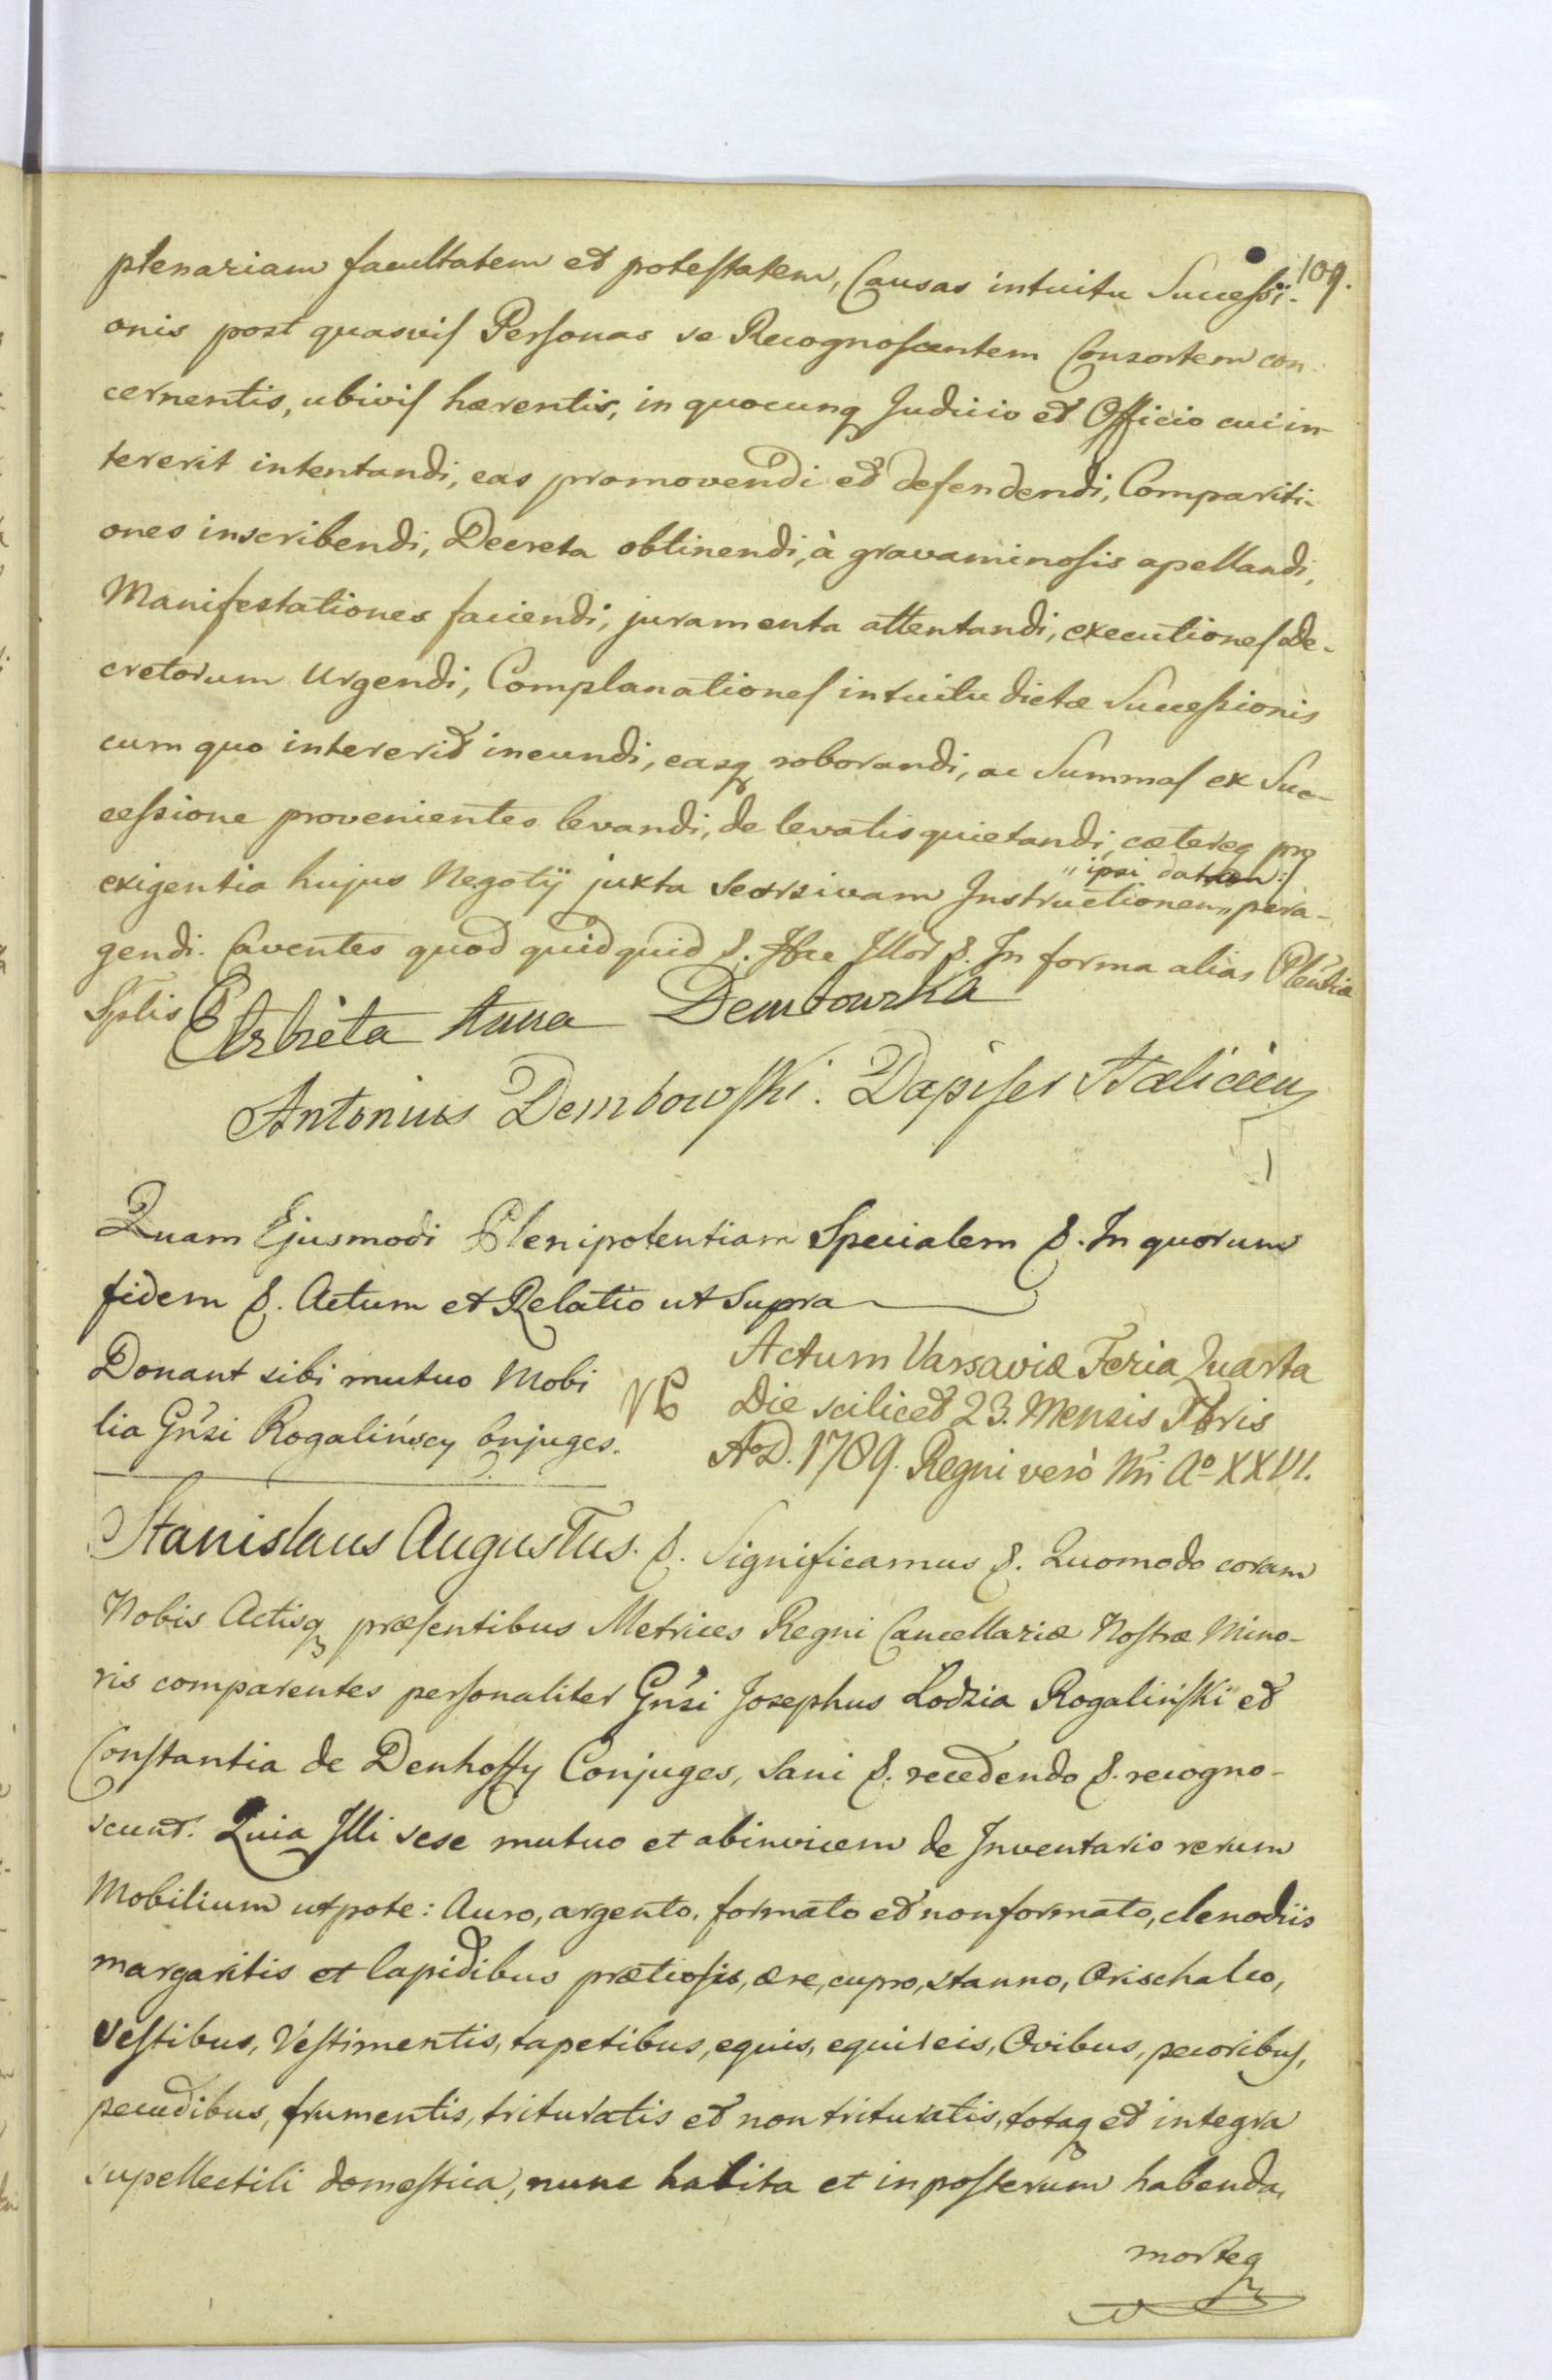 109.
plenariam facultatem et potestatem, Causas intuitu Successi-
onis post quasvis Personas se Recognoscentem Consortem con-
cernentis, ubivis hærentis, in quocunq Judicio et Officio cui in-
tererit intentandi, eas promovendi et defendendi, Compariti-
ones inscribendi, Decreta obtinendi, à gravaminosis apellandi,
Manifestationes faciendi, juramenta attentandi, executiones De-
cretorum Urgendi, Complanationes intuitu dictæ Successionis
cum quo intererit ineundi, easq roborandi, ac Summas ex Suc-
cessione provenientes levandi, de levatis quietandi, cæteraq pro
"ipsi datam:/
exigentia hujus Negotij juxta Seorsivam Instructionem,, pera-
gendi. Caventes quod quidquid &. Hæc Illor &. In forma alias Plentia
Splis
Elzbieta Anna Dembowska
Antonius Dembowski. Dapifer Halicien
Quam Ejusmodi Plenipotentiam Specialem &. In quorum
fidem &. Actum et Relatio ut Supra
Donant sibi mutuo Mobi
lia Gńsi Rogalińscy Conjuges.
Actum Varsaviæ Feria Quarta
Die scilicet 23. Mensis Xbris
AoD. 1789. Regni verò Nri Ao XXVI.
Stanislaus Augustus. &. Significamus &. Quomodo coram
Nobis Actisq præsentibus Metrices Regni Cancellariæ Nostræ Mino-
ris comparentes personaliter Gńsi Josephus Lodzia Rogaliński et
Constantia de Denhoffy Conjuges, Sani &. recedendo &. recogno-
scunt. Quia Illi sese mutuo et abinvicem de Inventario rerum
Mobilium utpote: Auro, argento, formato et nonformato, clenodiis
margaritis et lapidibus prætiosis, ære, cupro, stanno, Orischalco,
Vestibus, Vestimentis, tapetibus, equis, equireis, Ovibus, pecoribus,
pecudibus, frumentis, trituratis et non trituratis, totaq et integra
supellectili domestica, nunc habita et inposterum habenda,
morteq